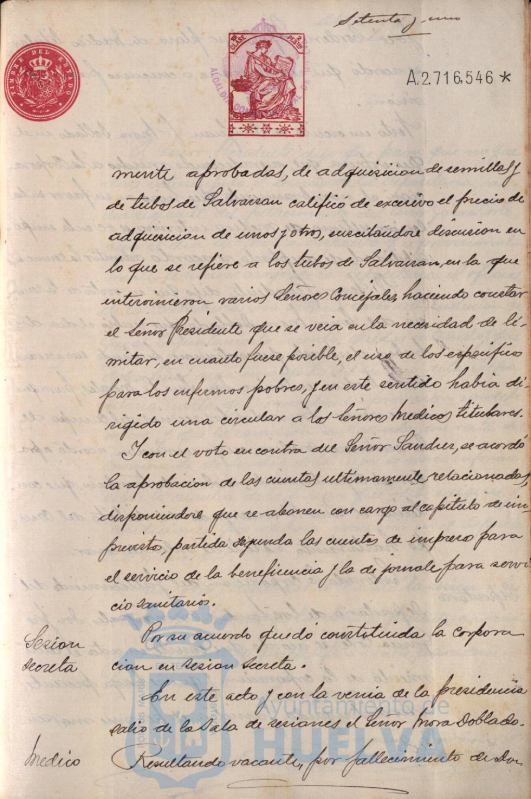 Setenta y uno
TIMBRE DEL ESTADO
A.2.716.546 *
mente aprobadas, de adquisicion de semillas y
de tubos de Salvarsan calificó de excesivo el precio de
adquisicion de unos y otros, suscitandose discusion en
lo que se refiere a los tubos de Salvarsan, en la que
intervinieron varios Señores Concejales, haciendo constar
el Señor Presidente que se veia en la necesidad de li-
mitar, en cuanto fuese posible, el uso de los especifico
para los enfermos pobres, y en este sentido habia di-
rigido una circular a los Señores Medicos titulares.
Y con el voto en contra del Señor Sanchez, se acordó
la aprobacion de las cuentas ultimamente relacionadas,
disponiendose que se abonen con cargo al capitulo de im-
previsto, partida segunda las cuentas de impreso para
el servicio de la beneficencia y la de jornales para servi
cio sanitarios.
Sesion
secreta
Por su acuerdo quedó constituida la corpora
cion en sesion secreta.
En este acto y con la venia de la presidencia
salio de la Sala de sesiones el Señor Mora Doblado.
Medico
Resultando vacante, por fallecimiento de Don
Ayuntamiento de
HUELVA